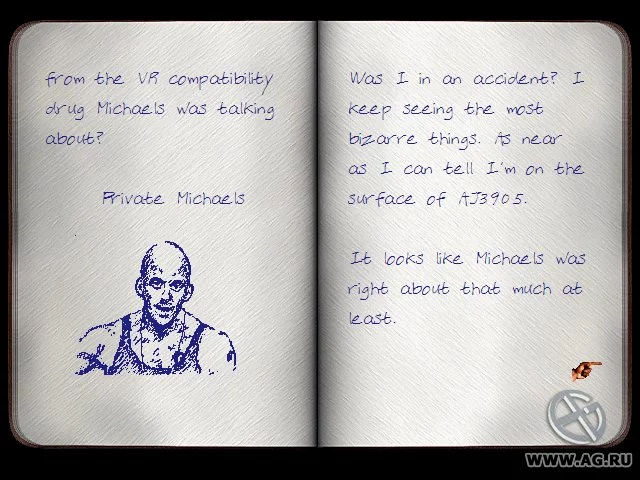 from the VR compatibility
drug Michaels was talking
about?
Private Michaels
Was I in an accident? I
keep seeing the most
bizarre things. As near
as I can tell I'm on the
surface of AJ3905.
It looks like Michaels was
right about that much at
least.
WWW.AG.RU